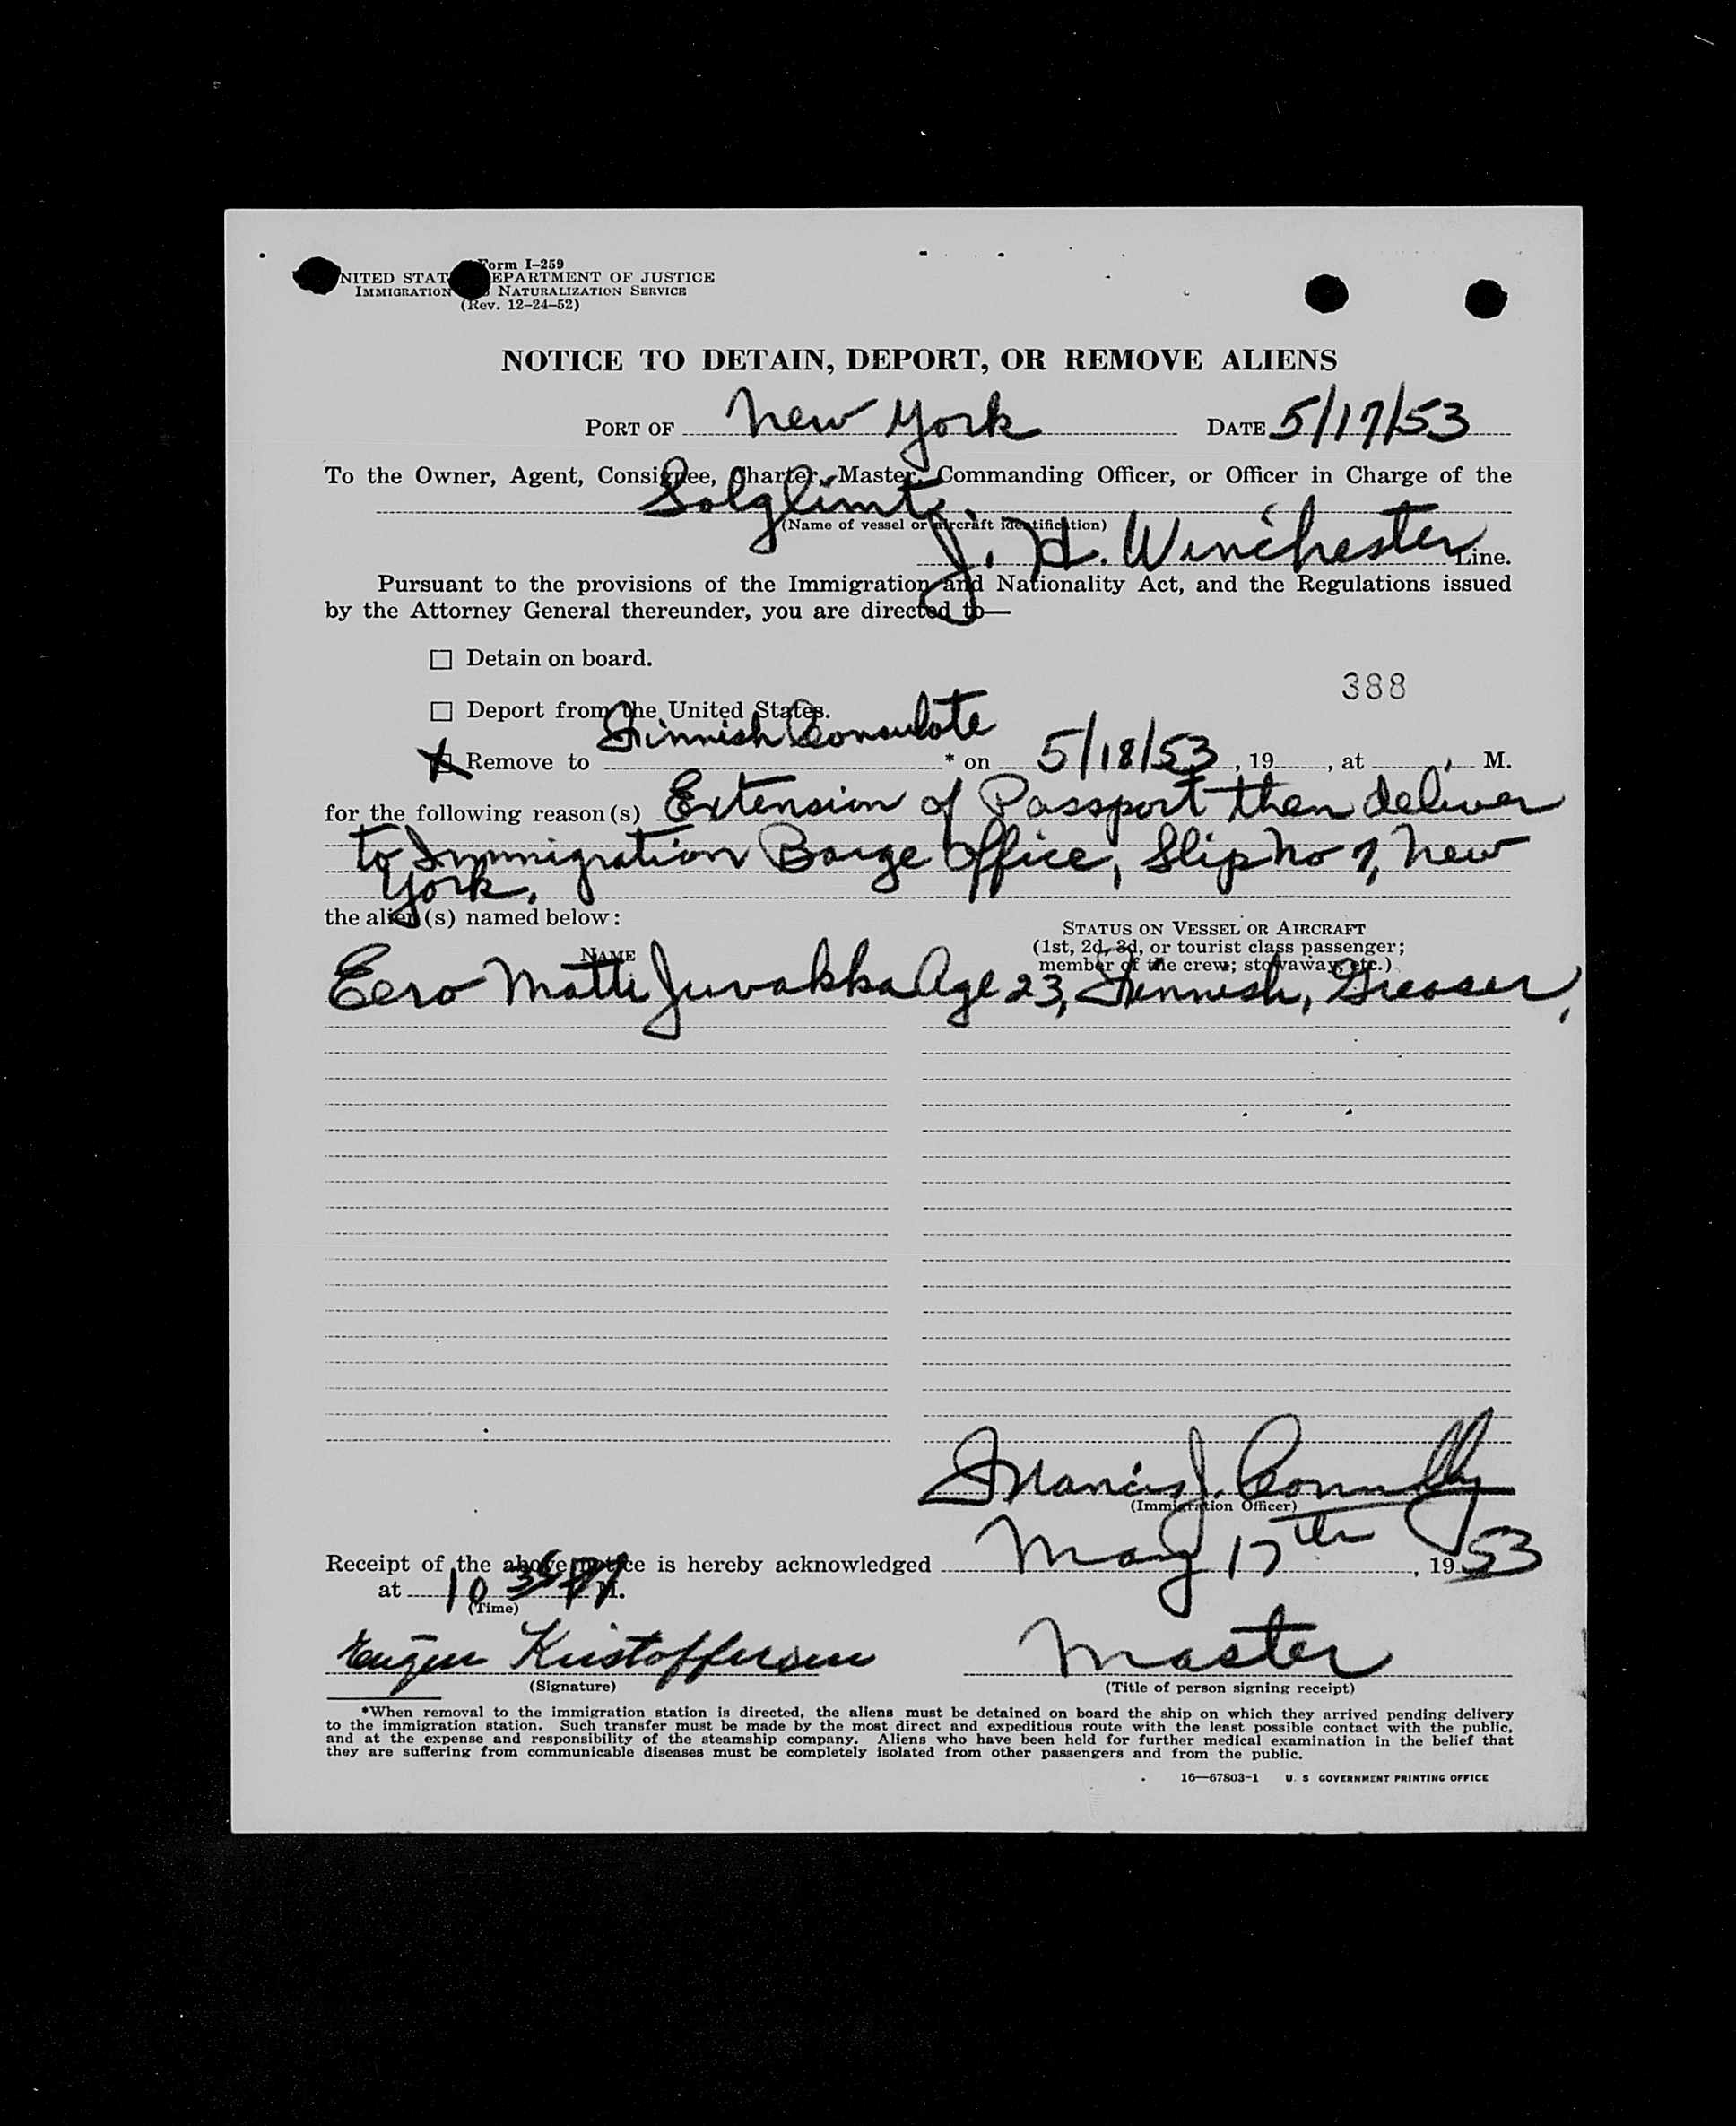 Form I-259
UNITED STATES DEPARTMENT OF JUSTICE
IMMIGRATION NATURALIZATION SERVICE
(Rev. 12-24-52)
NOTICE TO DETAIN, DEPORT, OR REMOVE ALIENS
PORT OF New York DATE 5/17/53
To the Owner, Agent, Consignee, Charter, Master, Commanding Officer, or Officer in Charge of the
Solglimt.
(Name of vessel or aircraft identification)
J. H. Winchester Line.
Pursuant to the provisions of the Immigration and Nationality Act, and the Regulations issued
by the Attorney General thereunder, you are directed to—
☐ Detain on board.
388
☐ Deport from the United States.
☒ Remove to Finnish Consulate * on 5/18/53, 19, at M.
for the following reason(s) Extension of Passport then deliver
to Immigration Barge Office, Slip No 7, New
York.
the alien(s) named below:
STATUS ON VESSEL OR AIRCRAFT
(1st, 2d, 3d, or tourist class passenger;
NAME
member of the crew; stowaway, etc.)
Eero Matti Juvakka Age 23, Finnish, Greaser,
Francis J. Connolly
(Immigration Officer)
Receipt of the above notice is hereby acknowledged May 17th, 1953
at 10 35 M.
(Time)
Eugen Kristoffersen Master
(Signature) (Title of person signing receipt)
*When removal to the immigration station is directed, the aliens must be detained on board the ship on which they arrived pending delivery
to the immigration station. Such transfer must be made by the most direct and expeditious route with the least possible contact with the public,
and at the expense and responsibility of the steamship company. Aliens who have been held for further medical examination in the belief that
they are suffering from communicable diseases must be completely isolated from other passengers and from the public.
16—67803-1 U. S GOVERNMENT PRINTING OFFICE